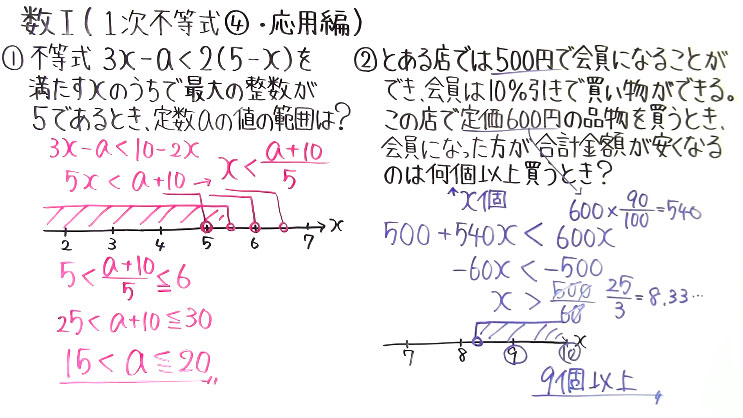 数I(1次不等式④・応用編)
① 不等式 3x-a<2(5-x)を
満たすxのうちで最大の整数が
5であるとき、定数aの値の範囲は?
3x-a<10-2x
5x<a+10 → x<\frac{a+10}{5}
2 3 4 5 6 7 x
5<\frac{a+10}{5}≦6
25<a+10≦30
15<a≦20
② とある店では500円で会員になることが
でき、会員は10%引きで買い物ができる。
この店で定価600円の品物を買うとき、
会員になった方が合計金額が安くなる
のは何個以上買うとき?
↑x個
600×\frac{90}{100}=540
500+540x<600x
-60x<-500
x>\frac{500}{60} \frac{25}{3}=8.33…
7 8 9 10 x
9個以上